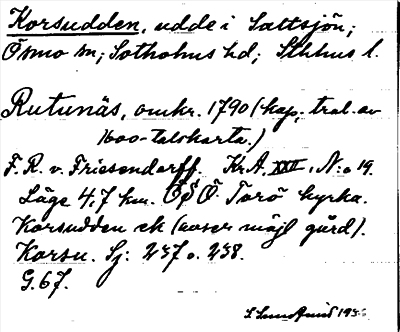 Korsudden, udde i Saltsjön;
Ösmo sn; Sotholms hd; Sthlms l.
Rutunäs, omkr. 1790 (kop. trol. av
1600-talskarta.)
F. R. v. Friesendorff. Kr.A. XXII, N:o 19.
Läge 4,7 km. ÖSÖ Torö kyrka.
Korsudden ek (avser möjl gård).
Korsu. Sj: 237 o. 238.
G. 67.